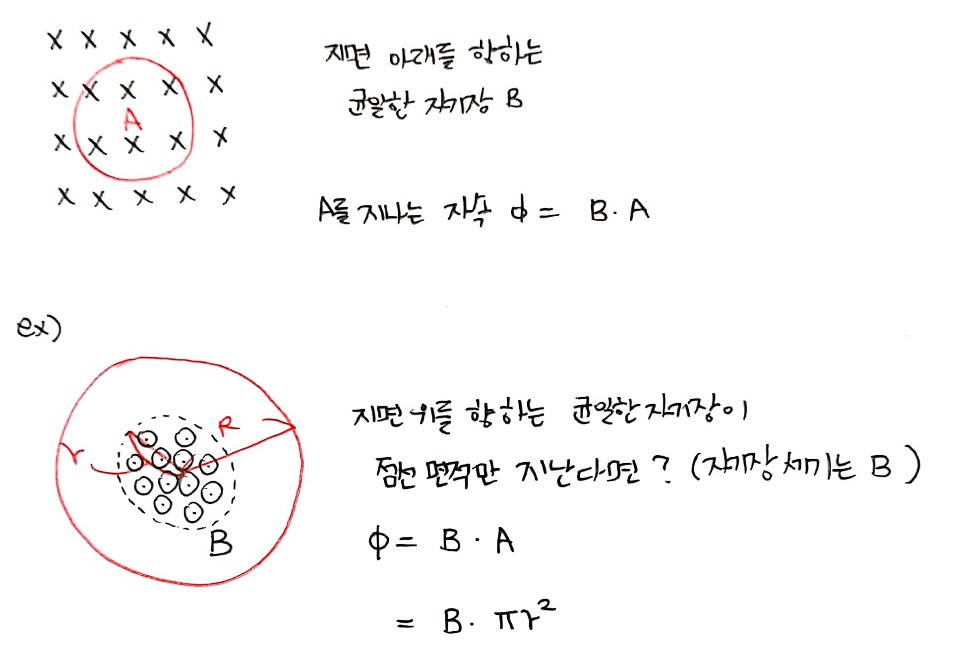 X X X X X
지면 아래를 향하는
X X X X X
균일한 자기장 B
A
X X X X X
X X X X X
A를 지나는 자속 ϕ = B · A
ex)
R
r
지면 위를 향하는 균일한 자기장이
점선 면적만 지난다면? (자기장 세기는 B)
B
ϕ = B · A
= B · πr²